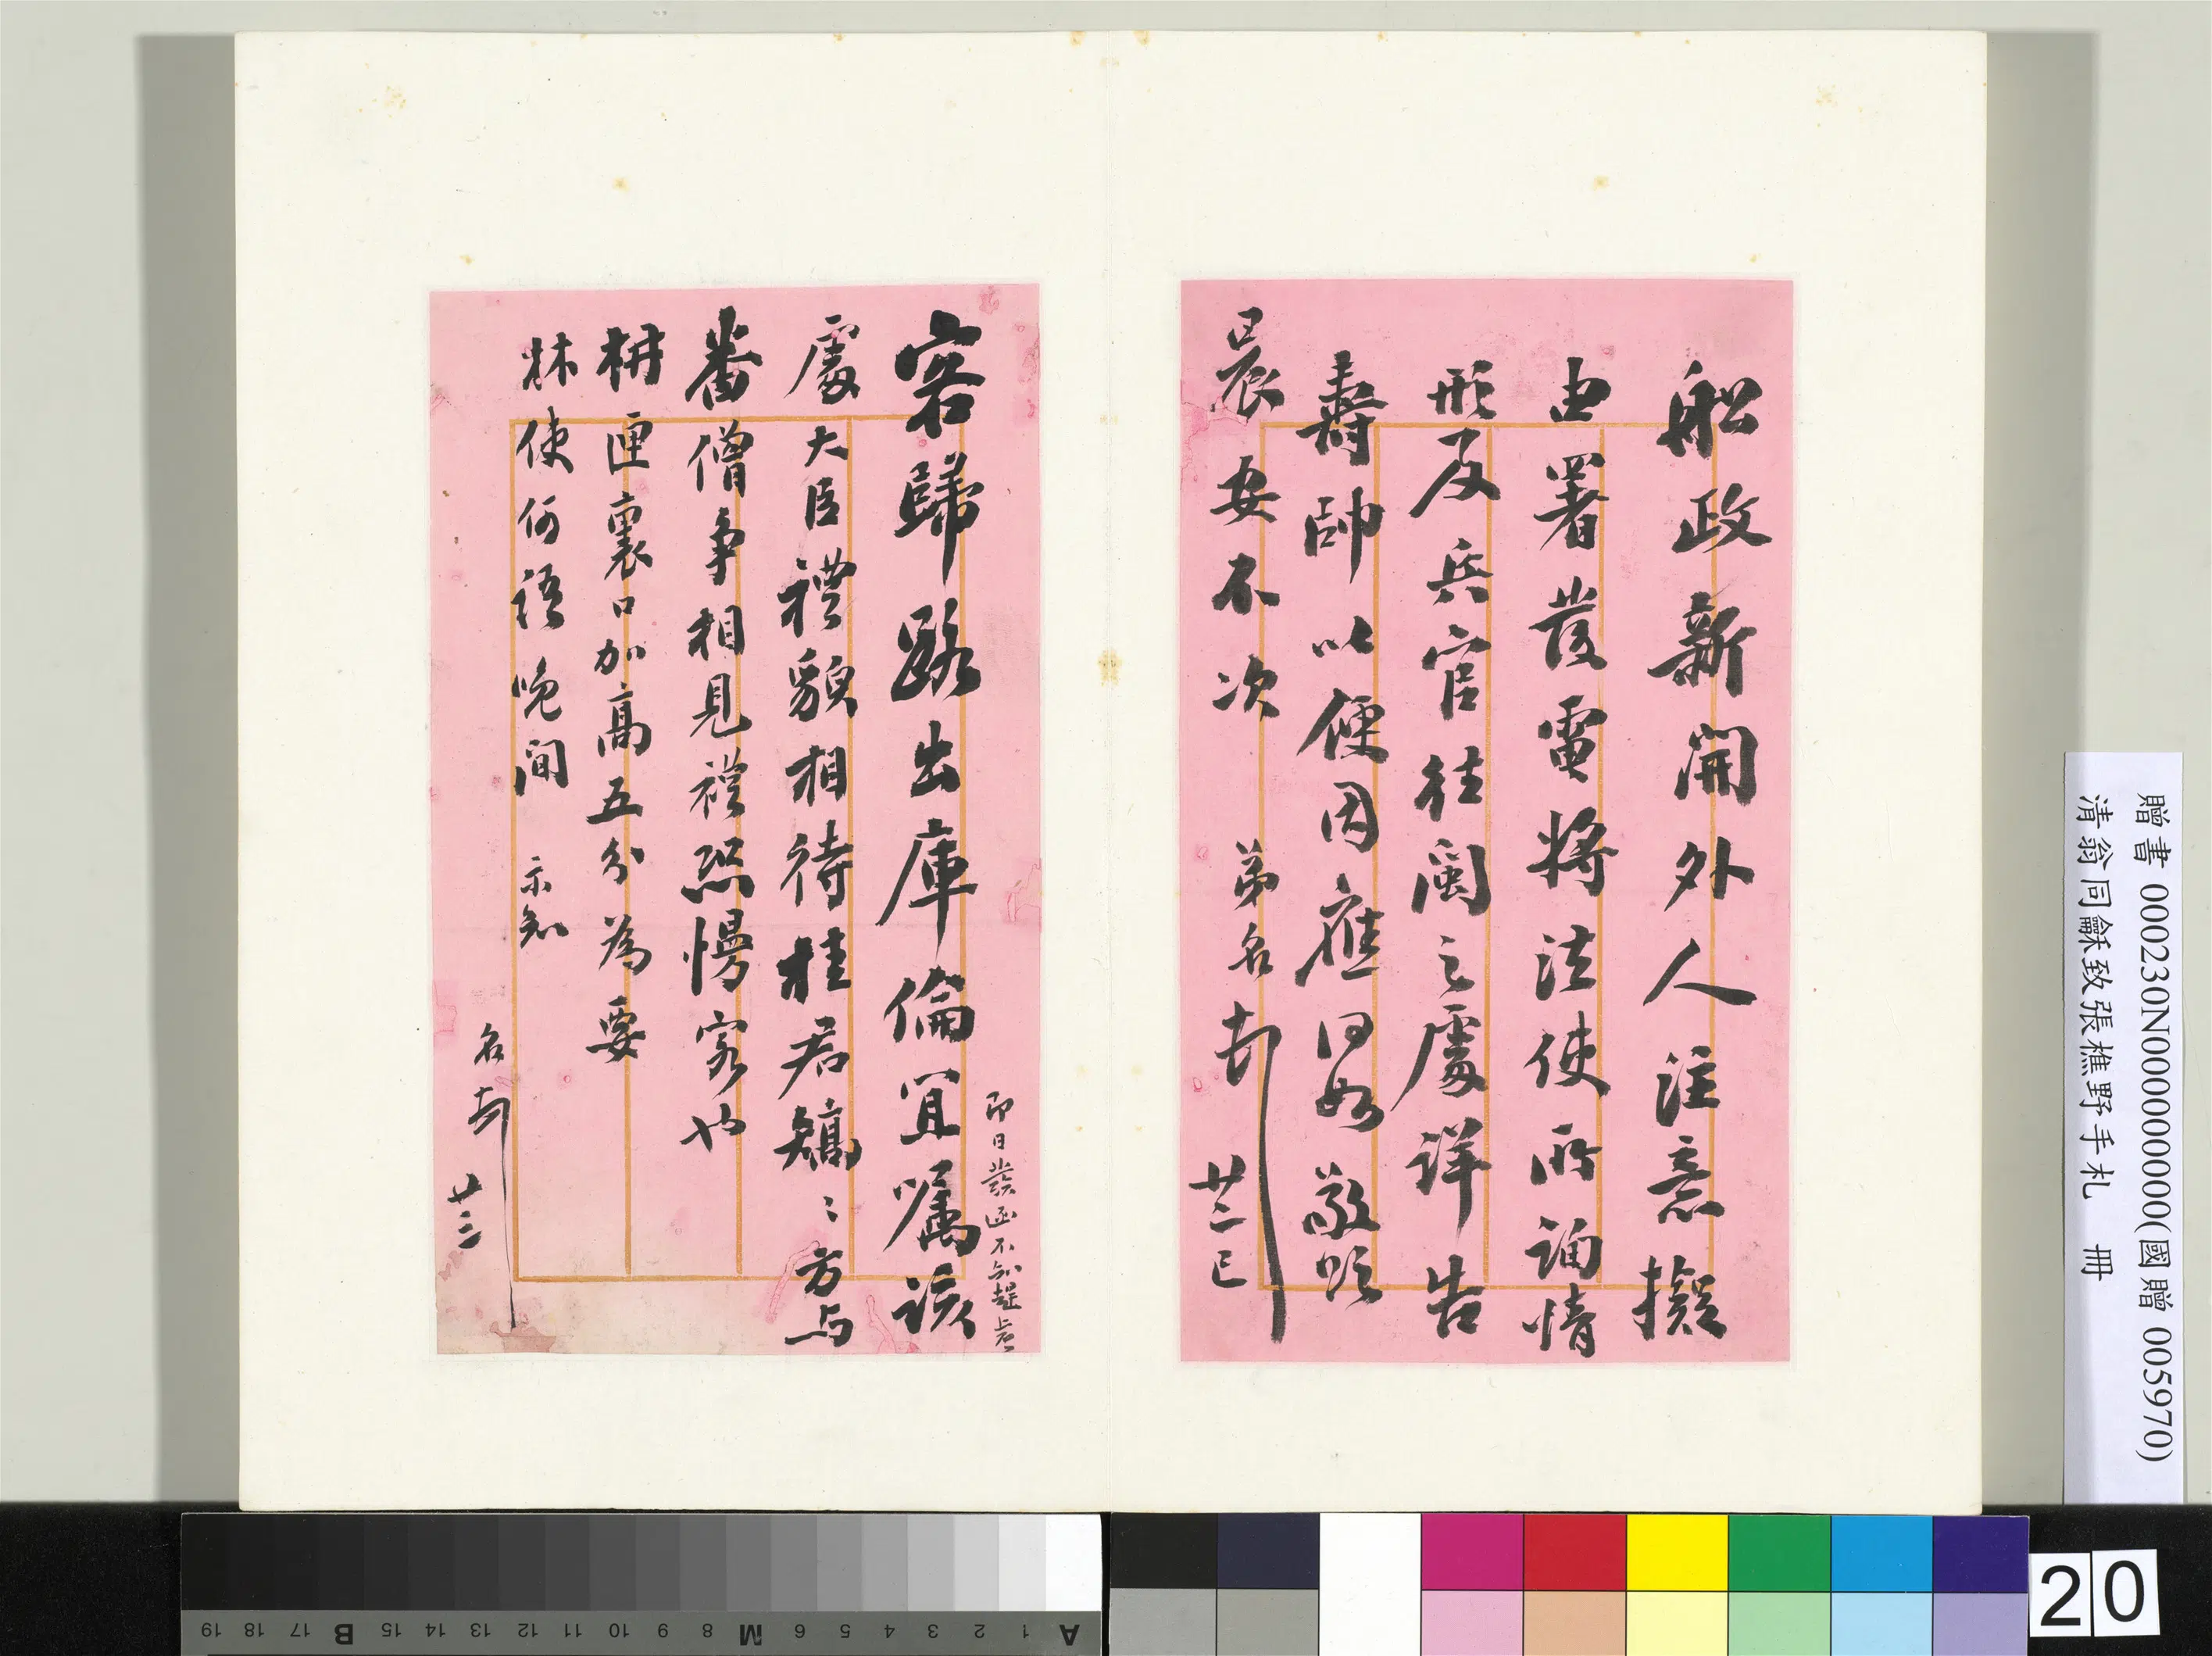 船政新開外人注意擬
由署發電將法使所詢情
形及兵官往閩之處詳告
壽帥以便因應同如敬頌
晨安不次 弟名頓 廿二巳
容歸路出庫倫宜囑該
處大臣禮貌相待桂君矯矯方与
番僧爭相見禮恐慢客也
枬匣裏口加高五分為要
林使何語晚間 示知
名頓 廿三
即日發函不知趕上否
贈書 000230N000000000(國贈 005970)
清翁同龢致張樵野手札 冊
20
A 1 2 3 4 5 6 7 8 M 9 10 11 12 13 14 15 B 17 18 19